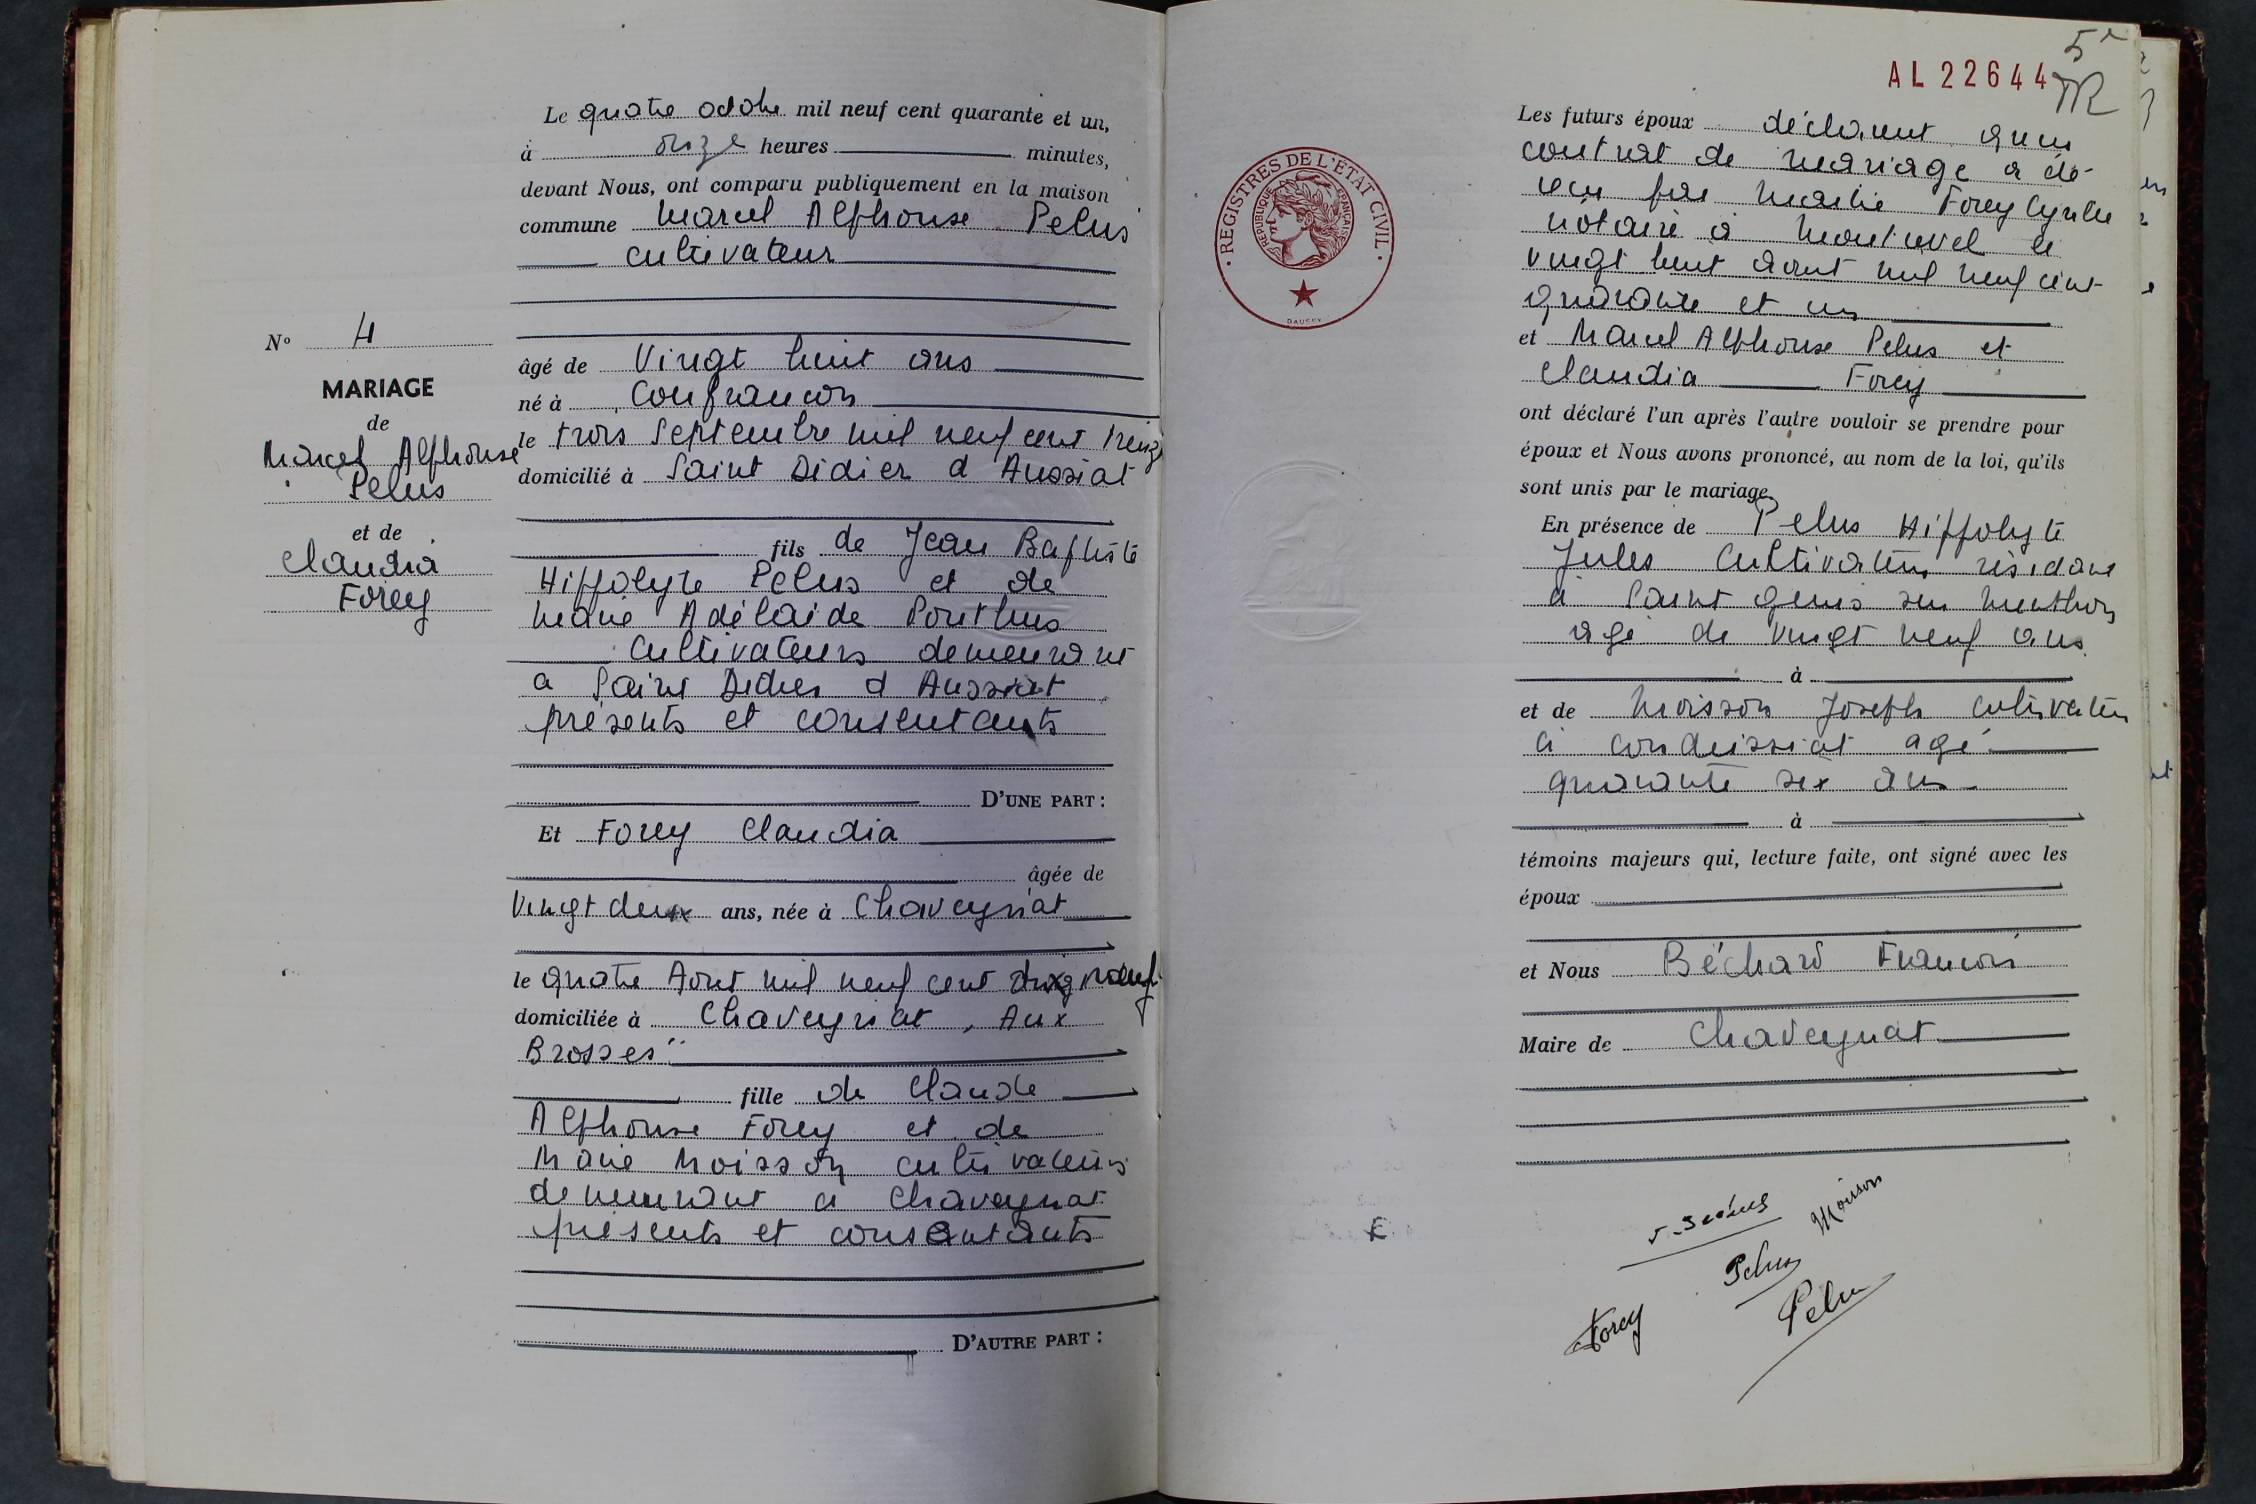 Le quatre octobre mil neuf cent quarante et un,
à onze heures minutes,
devant Nous, ont comparu publiquement en la maison
commune Marcel Alphonse Pelus
cultivateur
âgé de Vingt huit ans
né à Confrancon
le trois Septembre mil neuf cent treize
domicilié à Saint Didier d Aussiat
fils de Jean Baptiste
Hippolyte Pelus et de
Marie Adélaïde Ponthus
Cultivateurs demeurant
a Saint Didier d Aussiat
présents et consentants
D'UNE PART :
Et Forey Claudia
âgée de
Vingt deux ans, née à Chaveyriat
le quatre Aout mil neuf cent dix neuf
domiciliée à Chaveyriat, Aux
Brosses"
fille de Claude
Alphonse Forey et de
Marie Moisson cultivateurs
demeurant a Chaveyriat
présents et consentants
D'AUTRE PART :
N° 4
MARIAGE
de
Marcel Alphonse
Pelus
et de
Claudia
Forey
5
AL 22644
REGISTRES DE L'ETAT CIVIL
REPUBLIQUE FRANÇAISE
Les futurs époux déclarent qu'un
contrat de mariage a été
reçu par Maitre Forey
notaire à Montrevel le
vingt huit aout mil neuf cent
quarante et un
et Marcel Alphonse Pelus et
Claudia Forey
ont déclaré l'un après l'autre vouloir se prendre pour
époux et Nous avons prononcé, au nom de la loi, qu'ils
sont unis par le mariage.
En présence de Pelus Hippolyte
Jules Cultivateur résidant
à Saint Genis sur Menthon
agé de vingt neuf ans
à
et de Moisson Joseph cultivateur
à condeissiat agé
quarante six ans
à
témoins majeurs qui, lecture faite, ont signé avec les
époux
et Nous Béchard Francois
Maire de Chaveyriat
Moisson
Pelus
Pelus
Forey